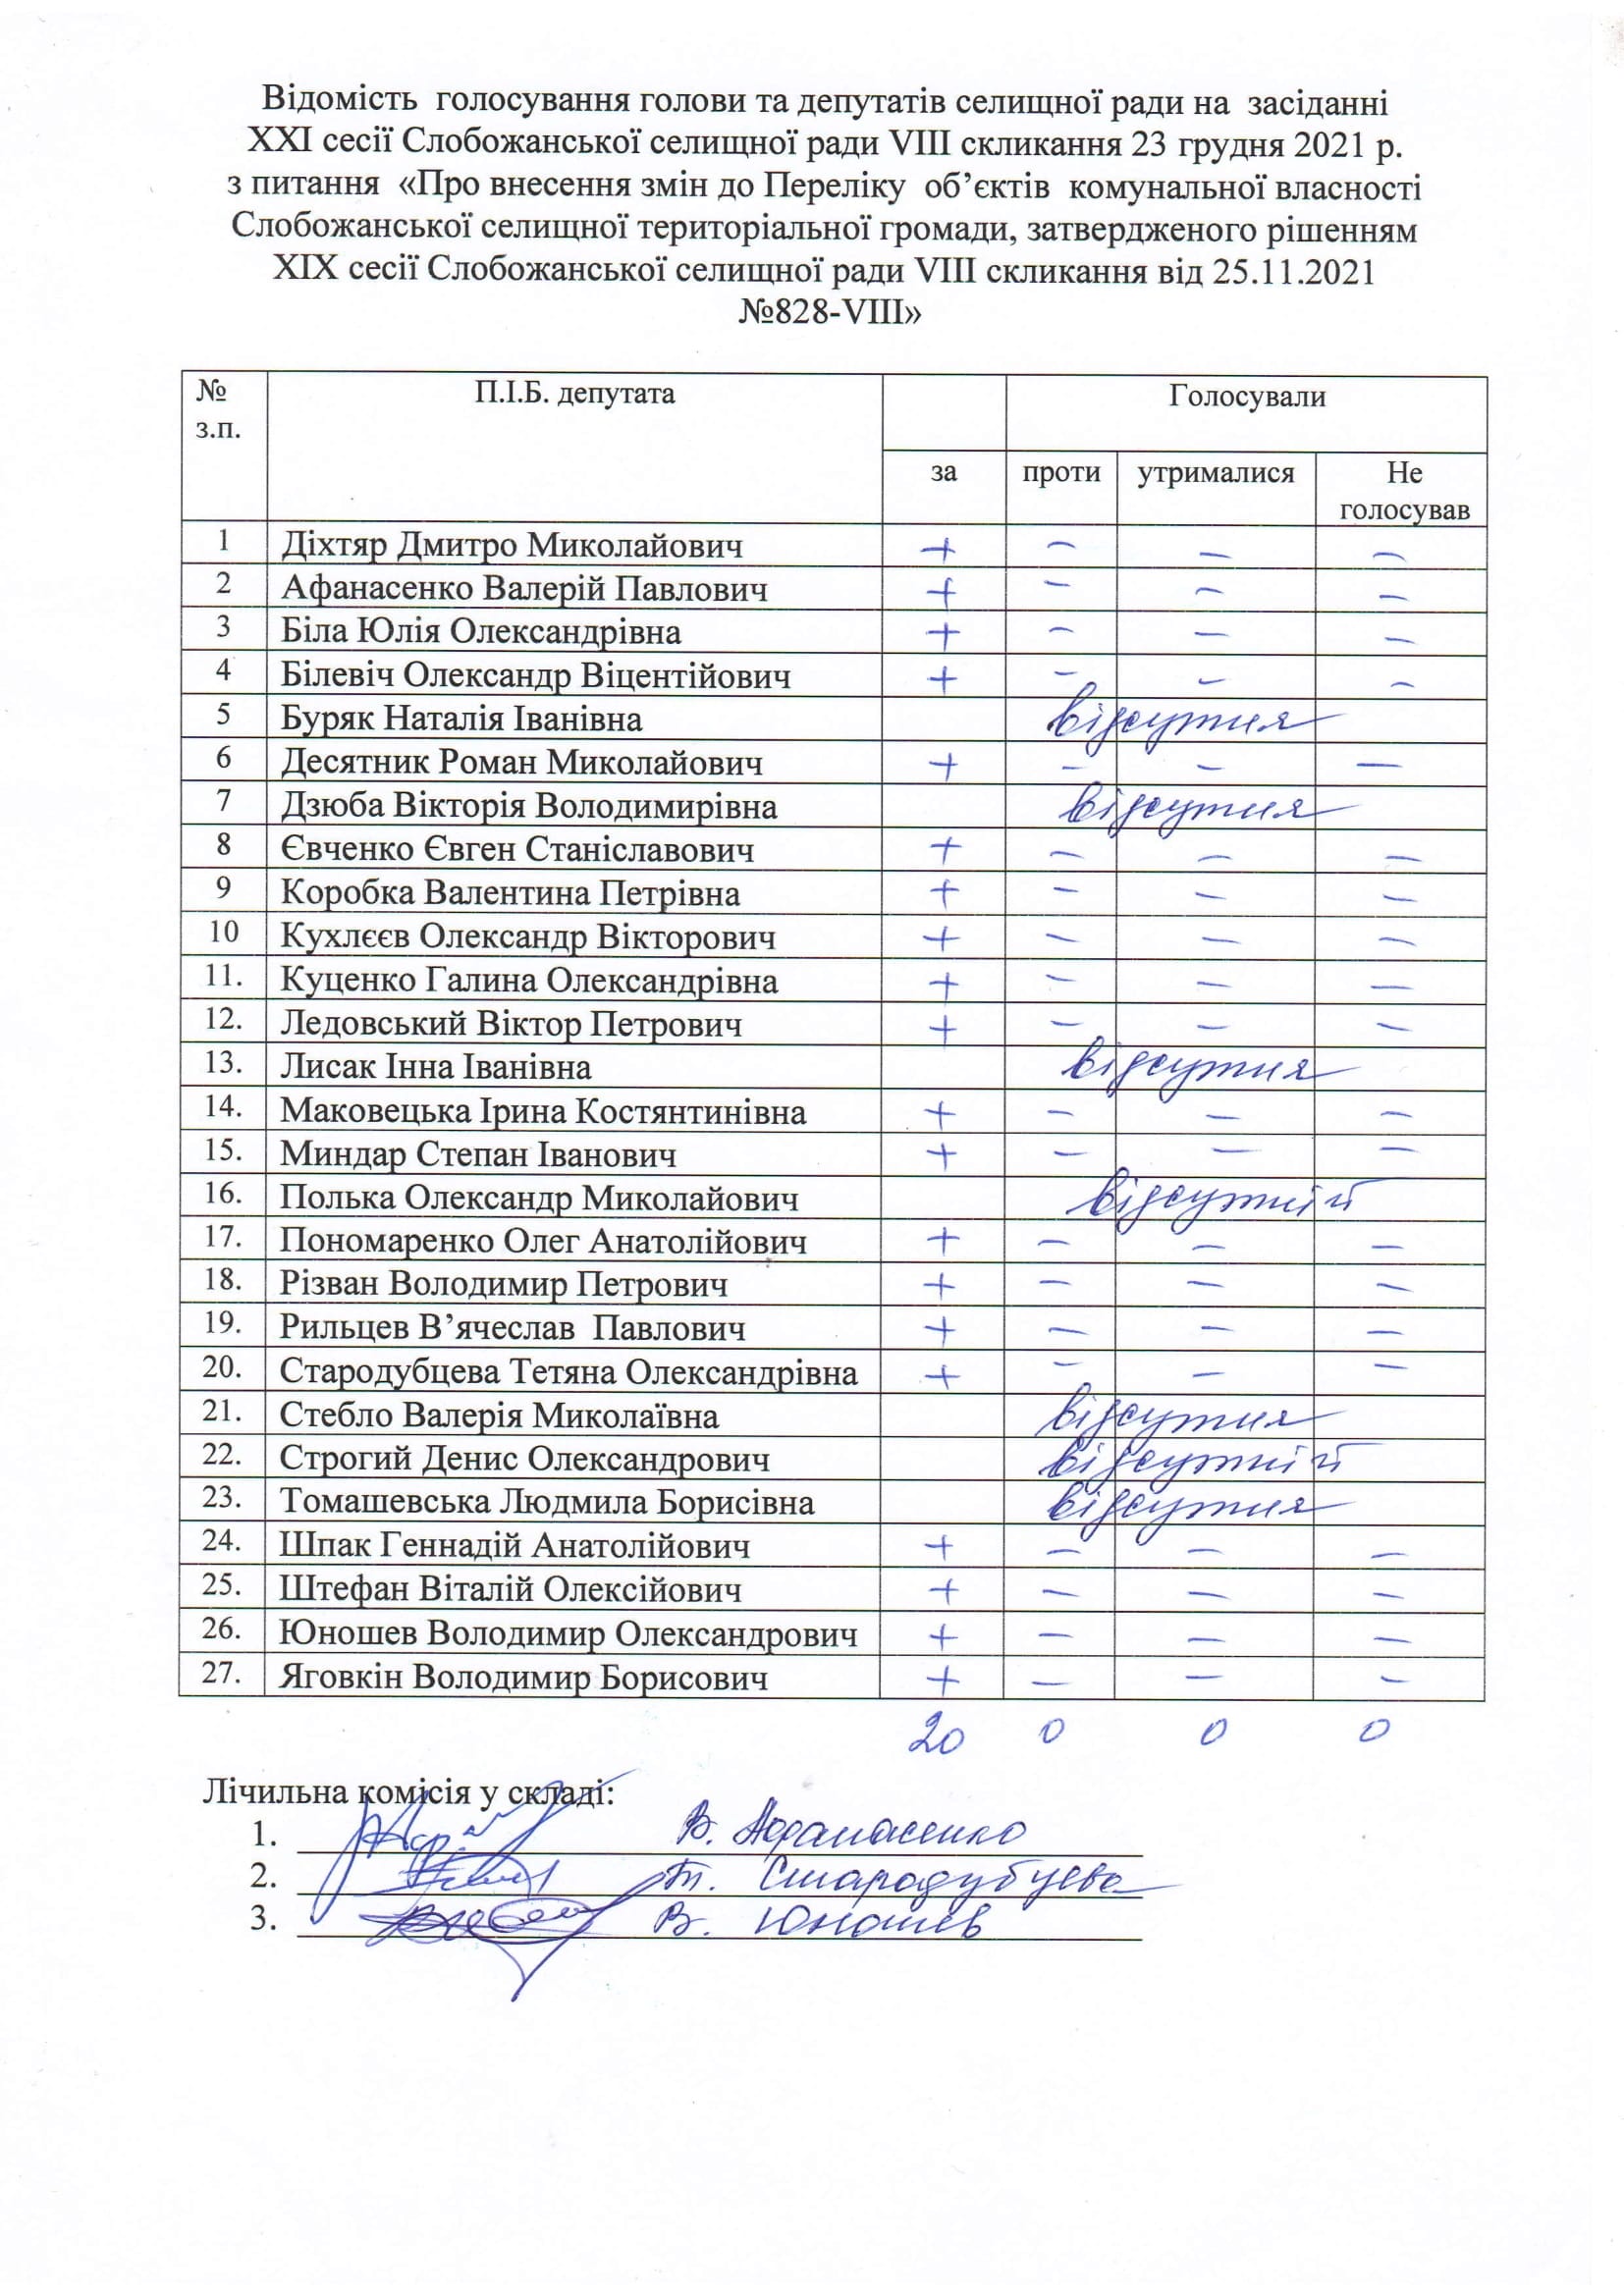 Відомість голосування голови та депутатів селищної ради на засіданні
XXI сесії Слобожанської селищної ради VIII скликання 23 грудня 2021 р.
з питання «Про внесення змін до Переліку об’єктів комунальної власності
Слобожанської селищної територіальної громади, затвердженого рішенням
XIX сесії Слобожанської селищної ради VIII скликання від 25.11.2021
№828-VIII»
№ з.п. П.І.Б. депутата Голосували
за проти утрималися Не голосував
1 Діхтяр Дмитро Миколайович + – – –
2 Афанасенко Валерій Павлович + – – –
3 Біла Юлія Олександрівна + – – –
4 Білевіч Олександр Віцентійович + – – –
5 Буряк Наталія Іванівна відсутня
6 Десятник Роман Миколайович + – – –
7 Дзюба Вікторія Володимирівна відсутня
8 Євченко Євген Станіславович + – – –
9 Коробка Валентина Петрівна + – – –
10 Кухлєєв Олександр Вікторович + – – –
11. Куценко Галина Олександрівна + – – –
12. Ледовський Віктор Петрович + – – –
13. Лисак Інна Іванівна відсутня
14. Маковецька Ірина Костянтинівна + – – –
15. Миндар Степан Іванович + – – –
16. Полька Олександр Миколайович відсутній
17. Пономаренко Олег Анатолійович + – – –
18. Різван Володимир Петрович + – – –
19. Рильцев В’ячеслав Павлович + – – –
20. Стародубцева Тетяна Олександрівна + – – –
21. Стебло Валерія Миколаївна відсутня
22. Строгий Денис Олександрович відсутній
23. Томашевська Людмила Борисівна відсутня
24. Шпак Геннадій Анатолійович + – – –
25. Штефан Віталій Олексійович + – – –
26. Юношев Володимир Олександрович + – – –
27. Яговкін Володимир Борисович + – – –
20 0 0 0
Лічильна комісія у складі:
1. В. Афанасенко
2. Т. Стародубцева
3. В. Юношев